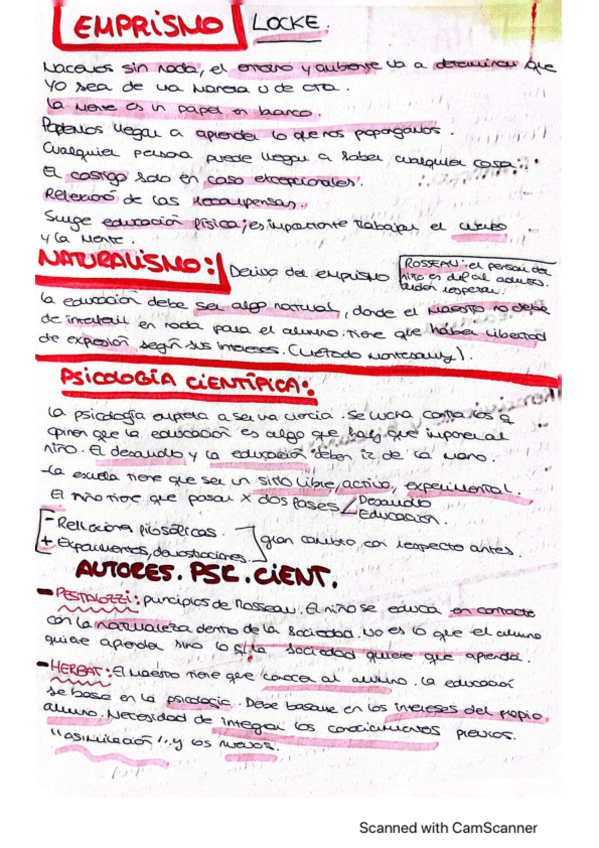 EMPRISMO LOCKE.
Nacemos sin nada, el entorno y ambiente va a determinar que
yo sea de una manera u de otra.
La mente es un papel en blanco.
Podemos llegar a aprender lo que nos propongamos.
Cualquier persona puede llegar a saber cualquier cosa.
El castigo solo en caso excepcionales.
Relevancia de las recompensas.
Surge educación física; es importante trabajar el cuerpo
y la mente.
NATURALISMO: Deriva del emprismo
ROSSEAU: el pensar del
niño es dif al adulto.
deben respetar.
La educación debe ser algo natural, donde el maestro no debe
de interferir en nada para el alumno. Tiene que haber libertad
de expresión según sus intereses. (Método Montessory).
PSICOLOGÍA CIENTÍFICA:
La psicología empieza a ser una ciencia. Se lucha contra los q
opinen que la educación es algo que hay que imponer al
niño. El desarrollo y la educación deben ir de la mano.
-La escuela tiene que ser un sitio libre, activo, experimental.
El niño tiene que pasar x dos fases Desarrollo
Educación.
- Reflexiones filosóficas.
+ Experimentos, demostraciones.
gran cambio con respecto antes.
AUTORES. PSC. CIENT.
- PESTALOZZI: principios de Rosseau. El niño se educa en contacto
con la naturaleza dentro de la sociedad. No es lo que el alumno
quiere aprender sino lo q la sociedad quiere que aprenda.
- HERBAT: El maestro tiene que conocer al alumno. La educación
se basa en la psicología. Debe basarse en los intereses del propio
alumno. Necesidad de integrar los conocimientos previos.
"asimilación", y los nuevos.
Scanned with CamScanner